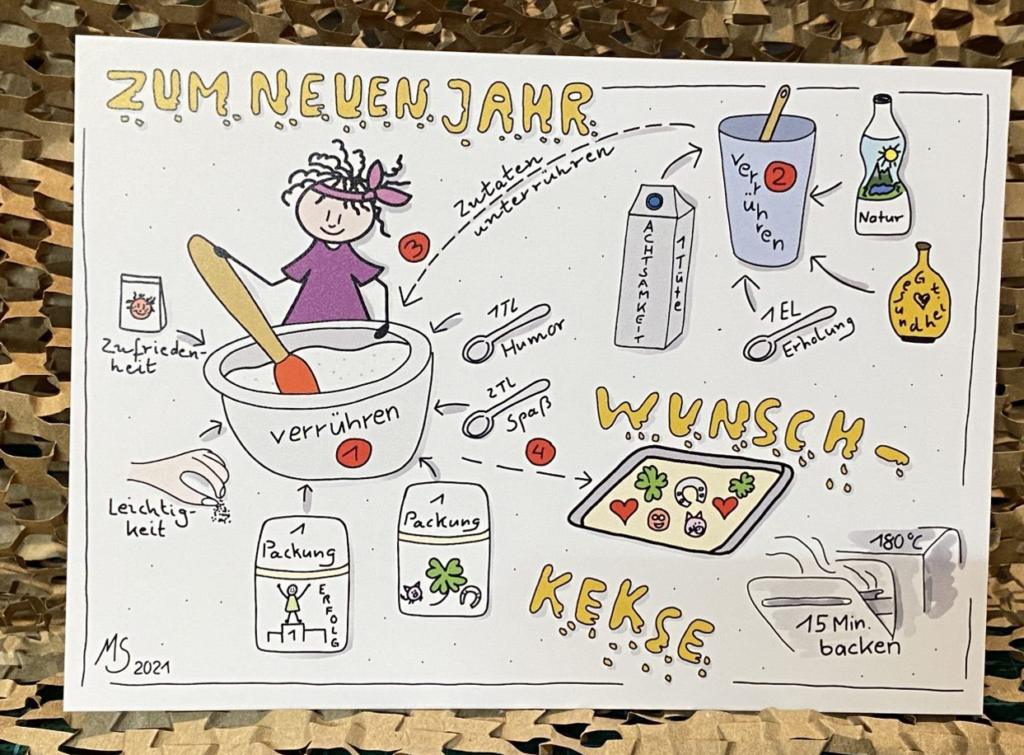 ZUM NEUEN JAHR
Zutaten
unterrühren
3
verrühren
2
Natur
ACHTSAMKEIT
1 Tüte
Gesundheit
1 EL
Erholung
Zufrieden-
heit
1 TL
Humor
2 TL
Spaß
verrühren
1
4
WUNSCH-
KEKSE
Leichtig-
keit
1
Packung
ERFOLG
1
1
Packung
180°C
15 Min.
backen
MS 2021